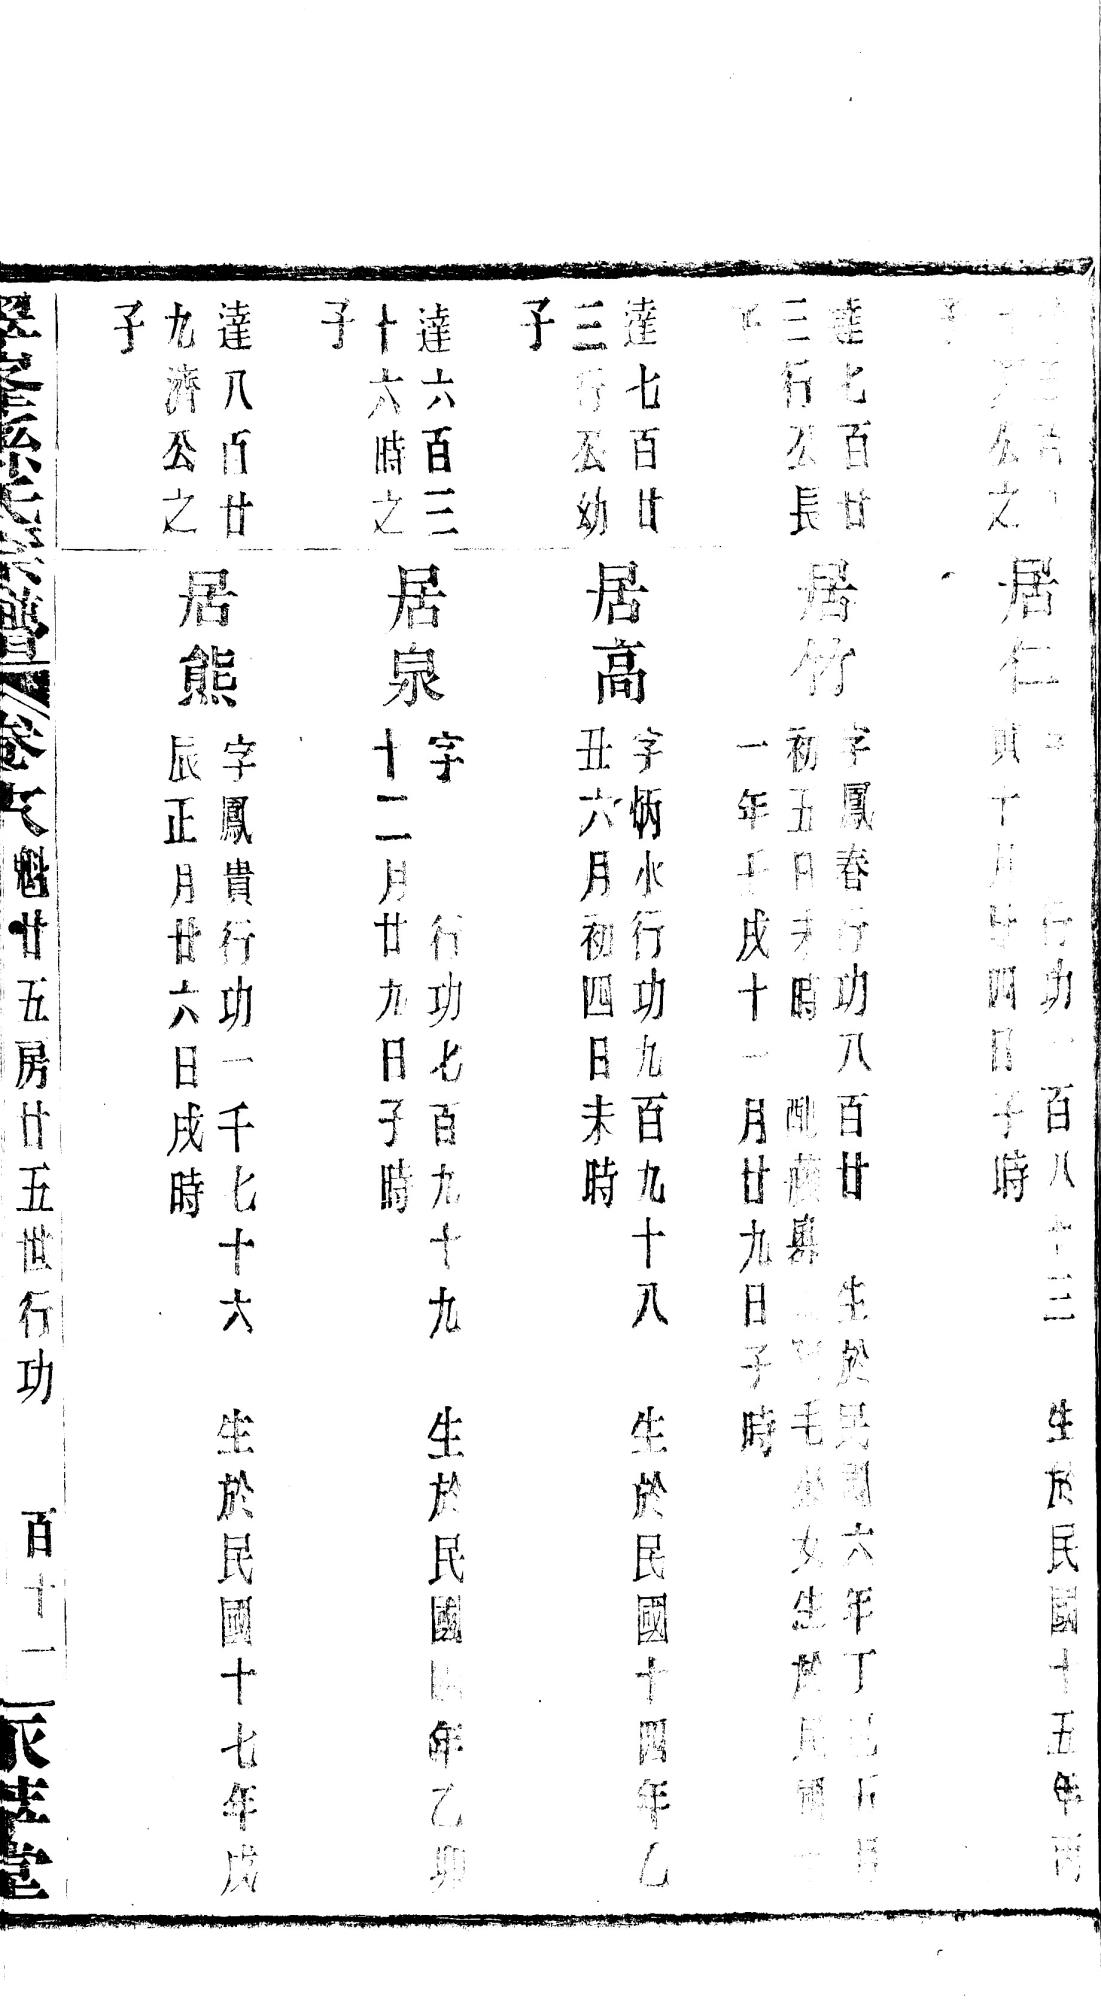 公之
居仁
行功一百八十三 生於民國十五年丙
寅十月廿四日子時
達七百廿
三行公長
子
居竹
字鳳春行功八百廿 生於民國六年丁巳五月
初五日未時 配 毛 女生於民國十
一年壬戌十一月廿九日子時
達七百廿
三行公幼
子
居高
字炳水行功九百九十八 生於民國十四年乙
丑六月初四日未時
達六百三
十六時之
子
居泉
字 行功七百九十九 生於民國四年乙卯
十二月廿九日子時
達八百廿
九濟公之
子
居熊
字鳳貴行功一千七十六 生於民國十七年戊
辰正月廿六日戌時
氏宗譜 卷 魁廿五房廿五世行功 百十一 堂